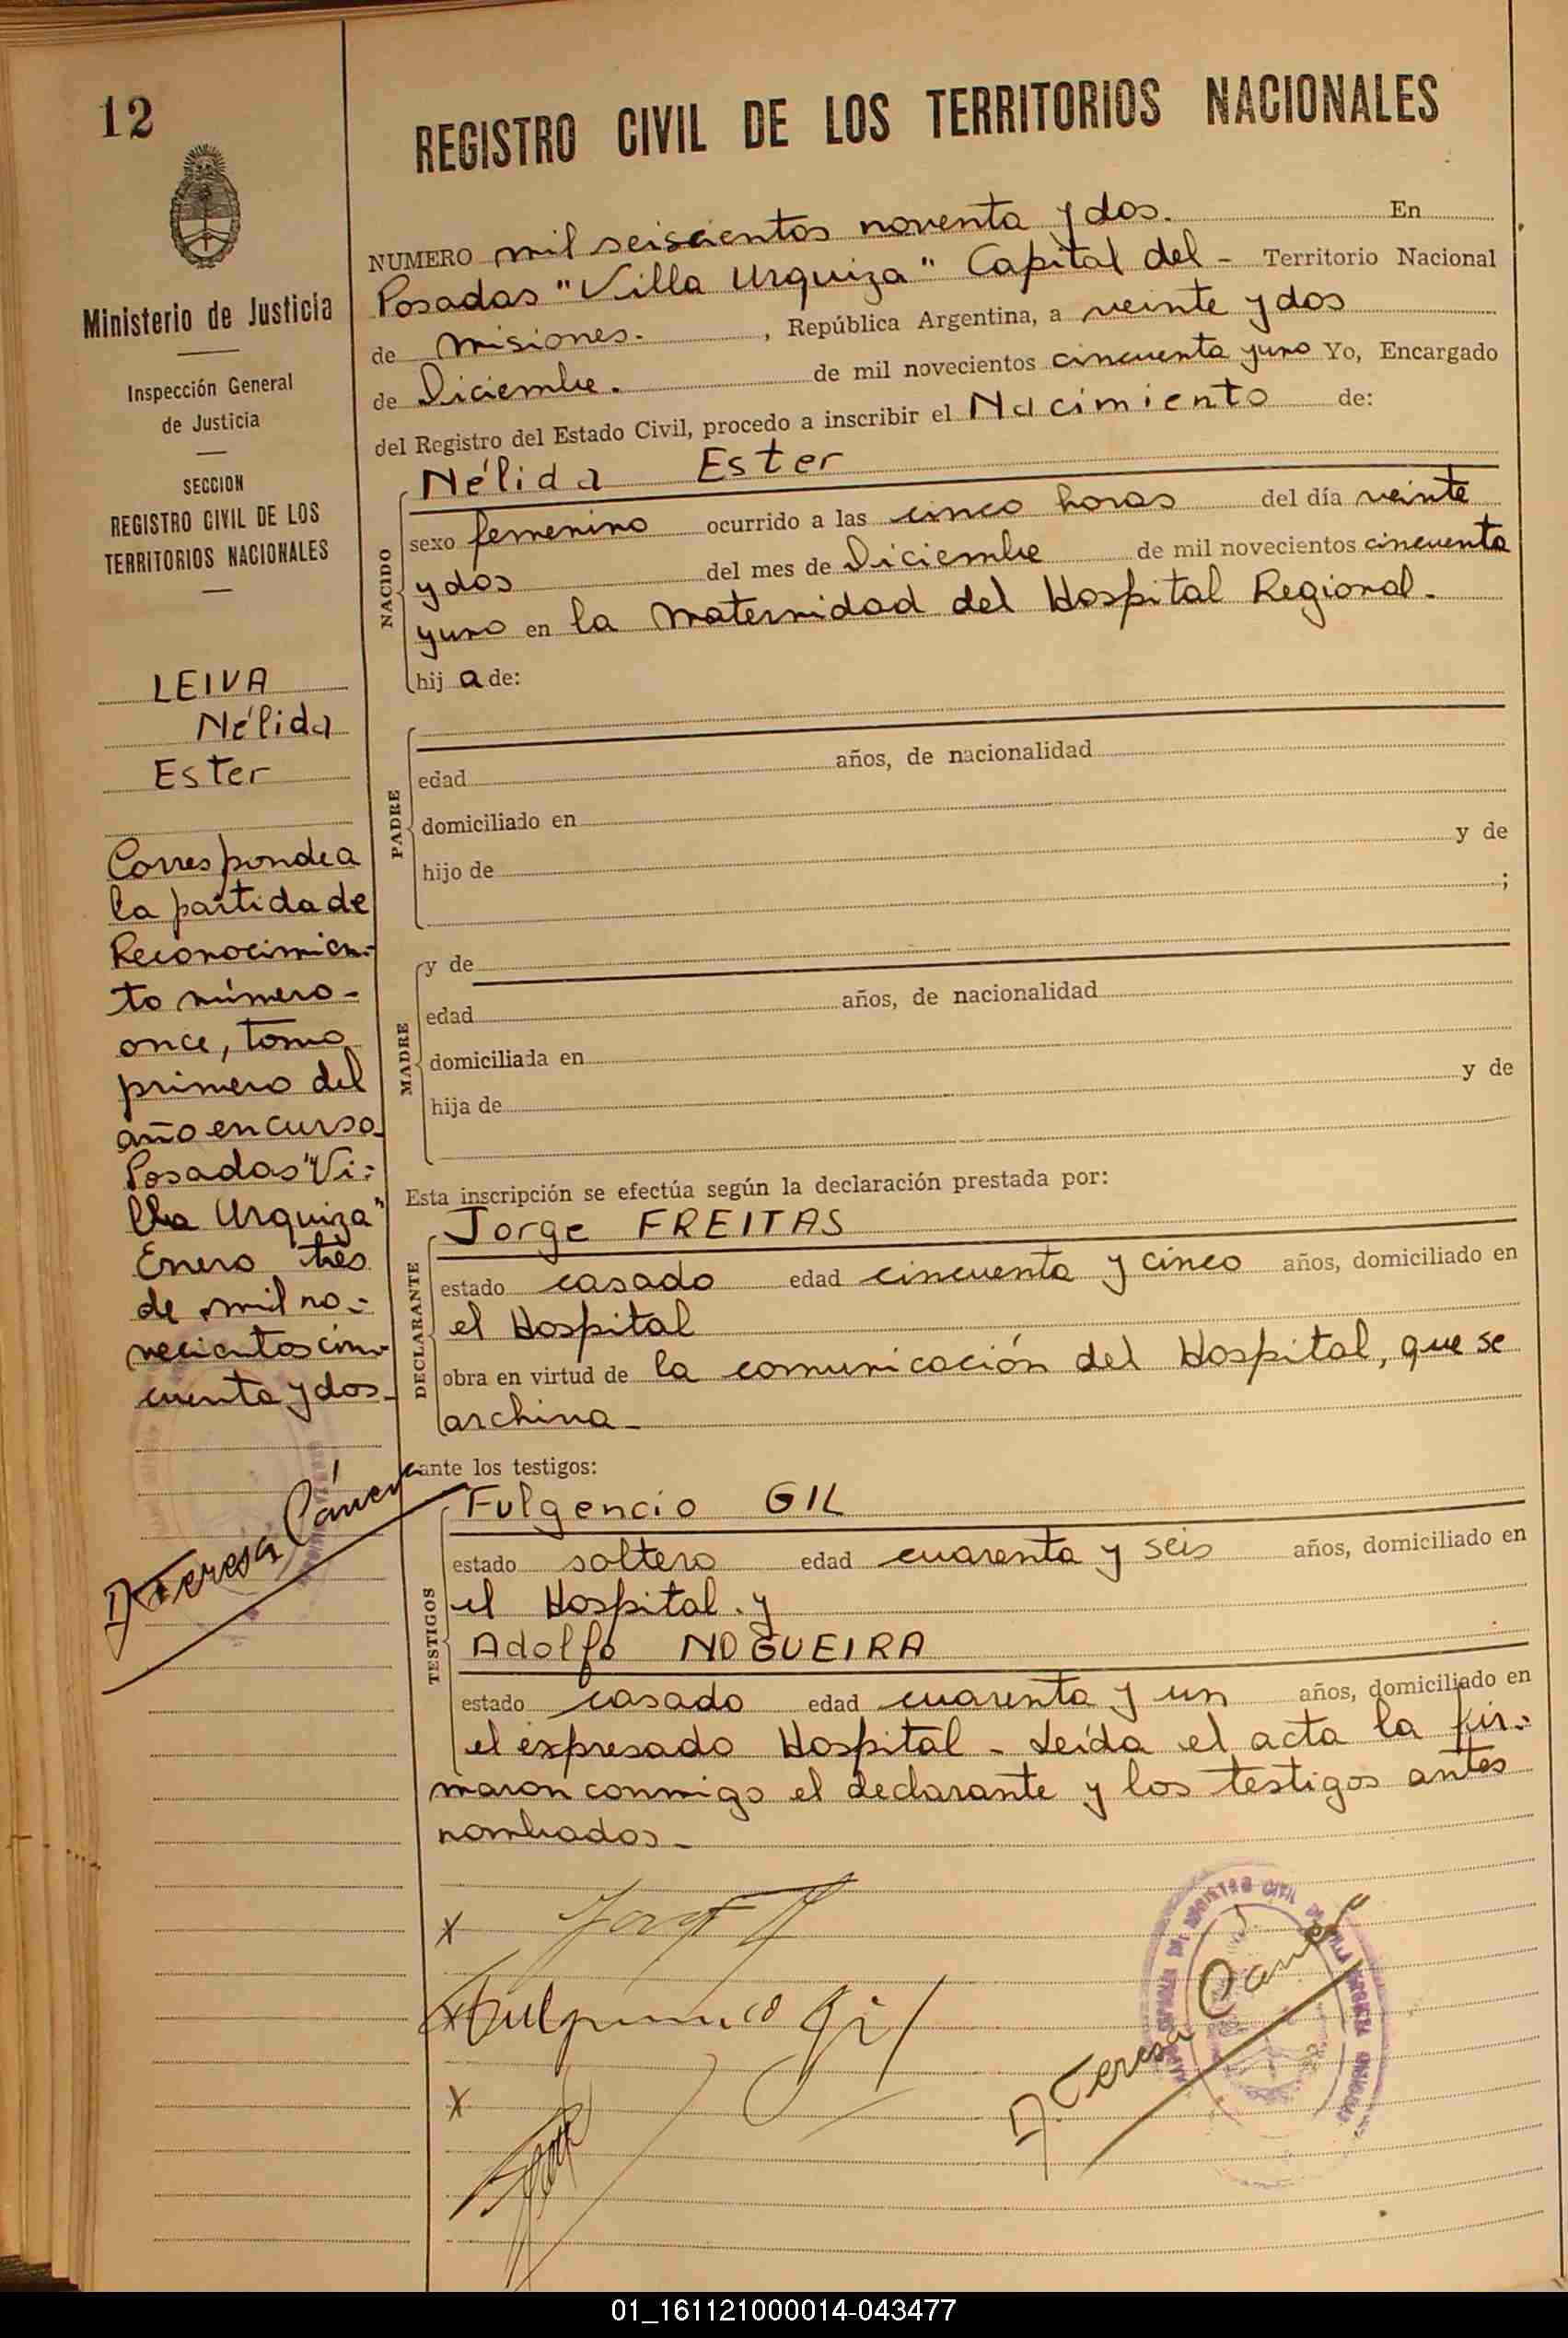 12
Ministerio de Justicia
Inspección General
de Justicia
SECCION
REGISTRO CIVIL DE LOS
TERRITORIOS NACIONALES
LEIVA
Nélida
Ester
Corresponde a
la partida de
Reconocimien-
to número-
once, tomo
primero del
año en curso.
Posadas "Vi-
lla Urquiza"
Enero tres
de mil no-
vecientos cin-
cuenta y dos-
REGISTRO CIVIL DE LOS TERRITORIOS NACIONALES
NUMERO mil seiscientos noventa y dos. En
Posadas "Villa Urquiza" Capital del - Territorio Nacional
de Misiones. , República Argentina, a veinte y dos
de Diciembre. de mil novecientos cincuenta y uno Yo, Encargado
del Registro del Estado Civil, procedo a inscribir el Nacimiento de:
NACIDO
Nélida Ester
sexo femenino ocurrido a las cinco horas del día veinte
y dos del mes de Diciembre de mil novecientos cincuenta
y uno en la Maternidad del Hospital Regional.
hij a de:
PADRE
edad años, de nacionalidad
domiciliado en
hijo de y de
;
MADRE
y de
edad años, de nacionalidad
domiciliada en
hija de y de
Esta inscripción se efectúa según la declaración prestada por:
DECLARANTE
Jorge FREITAS
estado casado edad cincuenta y cinco años, domiciliado en
el Hospital
obra en virtud de la comunicación del Hospital, que se
archiva-
ante los testigos:
TESTIGOS
Fulgencio GIL
estado soltero edad cuarenta y seis años, domiciliado en
el Hospital. y
Adolfo NOGUEIRA
estado casado edad cuarenta y un años, domiciliado en
el expresado Hospital - Leída el acta la fir-
maron conmigo el declarante y los testigos antes
nombrados-
x
x
x
01_161121000014-043477